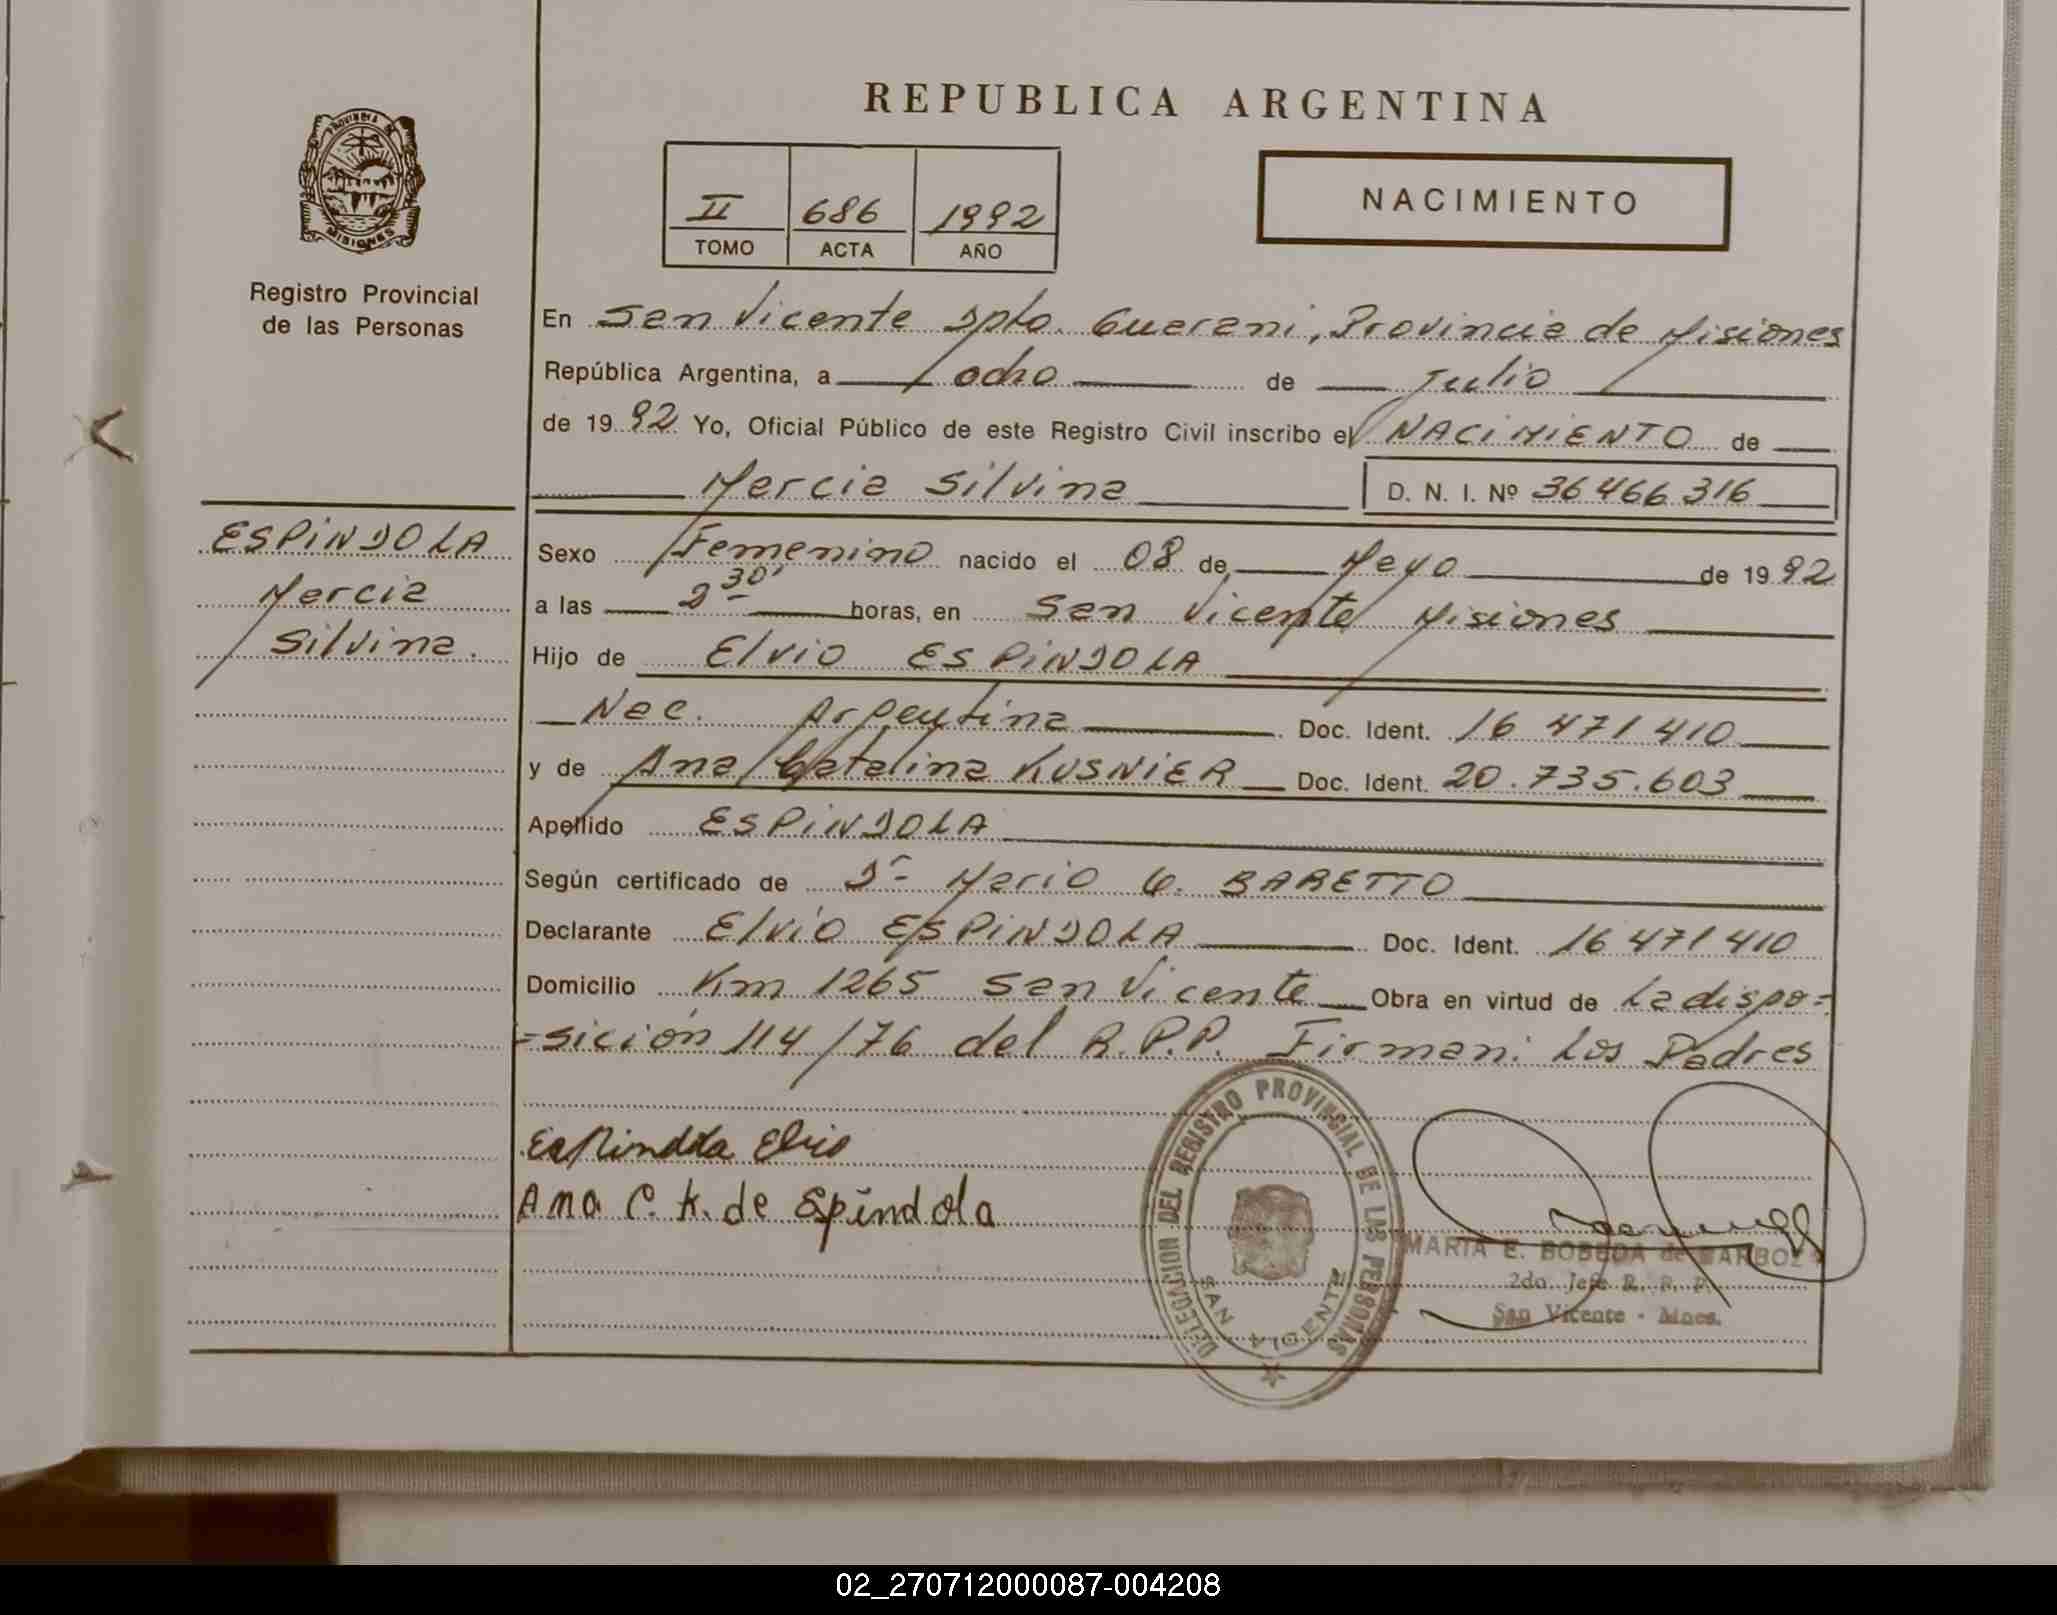 REPUBLICA ARGENTINA
PROVINCIA DE
MISIONES
Registro Provincial
de las Personas
II 686 1992
TOMO ACTA AÑO
NACIMIENTO
En San Vicente Dpto. Guarani, Provincia de Misiones
República Argentina, a ocho de Julio
de 1992 Yo, Oficial Público de este Registro Civil inscribo el NACIMIENTO de
Marcia Silvina D. N. I. Nº 36 466 316
ESPINDOLA
Marcia
Silvina.
Sexo Femenino nacido el 08 de Mayo de 1992
a las 2 30' horas, en San Vicente Misiones
Hijo de Elvio ESPINDOLA
Nac. Argentina Doc. Ident. 16 471 410
y de Ana Catalina KUSNIER Doc. Ident. 20.735.603
Apellido ESPINDOLA
Según certificado de Dr Mario G. BARETTO
Declarante Elvio ESPINDOLA Doc. Ident. 16 471 410
Domicilio Km 1265 San Vicente Obra en virtud de La dispo=
=sición 114/76 del R.P.P. Firman: Los Padres
Espindola Elvio
Ana C. K. de Espíndola
DELEGACION DEL REGISTRO PROVINCIAL DE LAS PERSONAS
SAN VICENTE
MARIA E. BOBEDA de BARBOZA
2do. Jefe R. P. P.
San Vicente - Mnes.
02_270712000087-004208